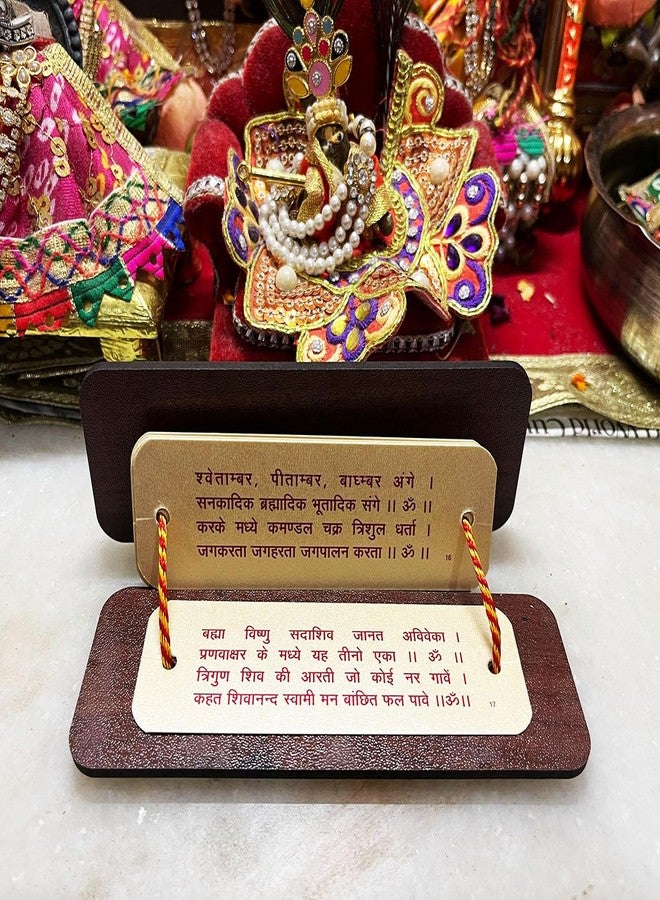 श्वेताम्बर, पीताम्बर, बाघ्म्बर अंगे ।
सनकादिक ब्रह्मादिक भूतादिक संगे ।। ॐ ।।
करके मध्ये कमण्डल चक्र त्रिशुल धर्ता ।
जगकरता जगहरता जगपालन करता ।। ॐ ।।
16
बह्मा विष्णु सदाशिव जानत अविवेका ।
प्रणवाक्षर के मध्ये यह तीनो एका ।। ॐ ।।
त्रिगुण शिव की आरती जो कोई नर गावें ।
कहत शिवानन्द स्वामी मन वांछित फल पावे ।।ॐ।।
17